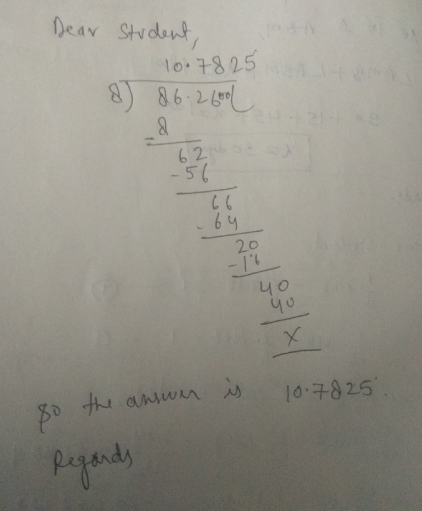 Dear Student,
10.7825
8) 86.2600(
- 8
62
- 56
66
- 64
20
- 16
40
40
x
So the answer is 10.7825.
Regards